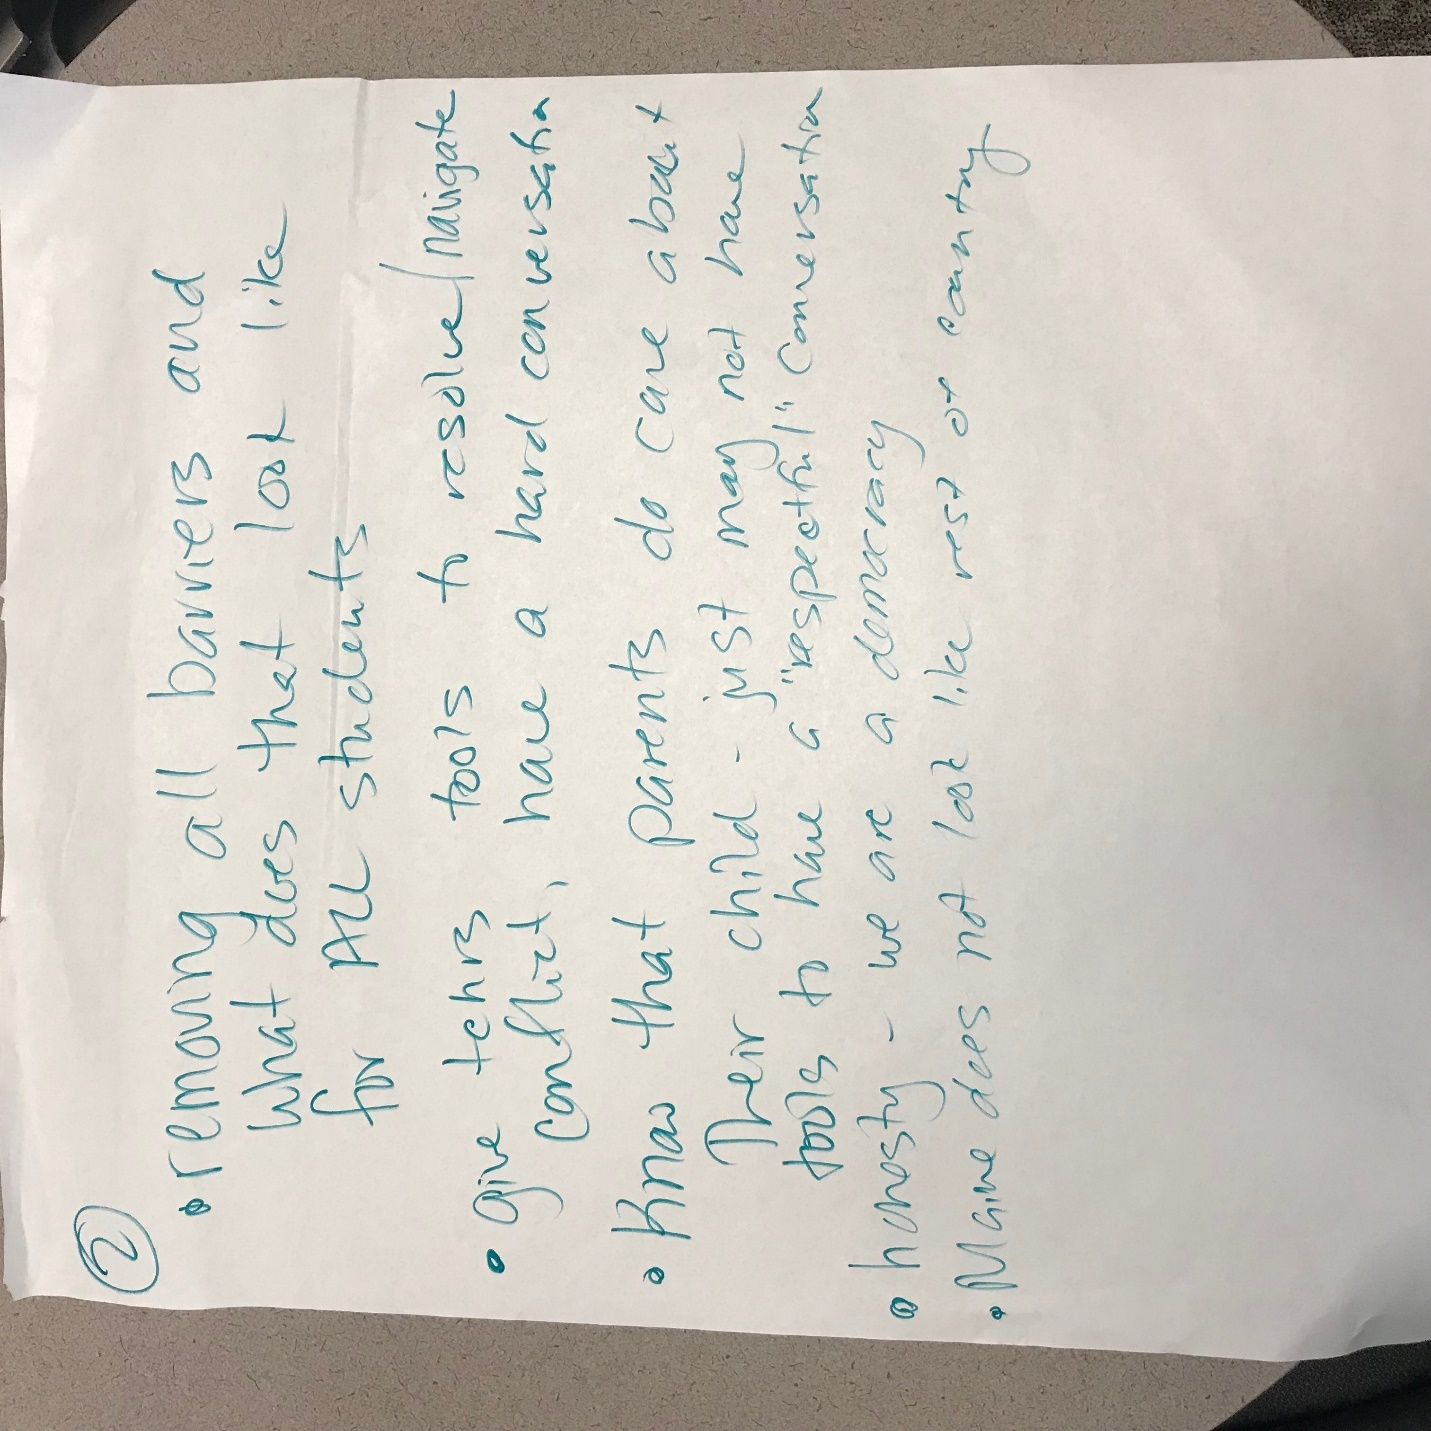 2
• removing all barriers and
what does that look like
for ALL students
• give tchrs tools to resolve/navigate
conflict, have a hard conversation
• Know that parents do care about
Their child - just may not have
tools to have a "respectful" conversation
• honesty - we are a democracy
• Maine does not look like rest of country